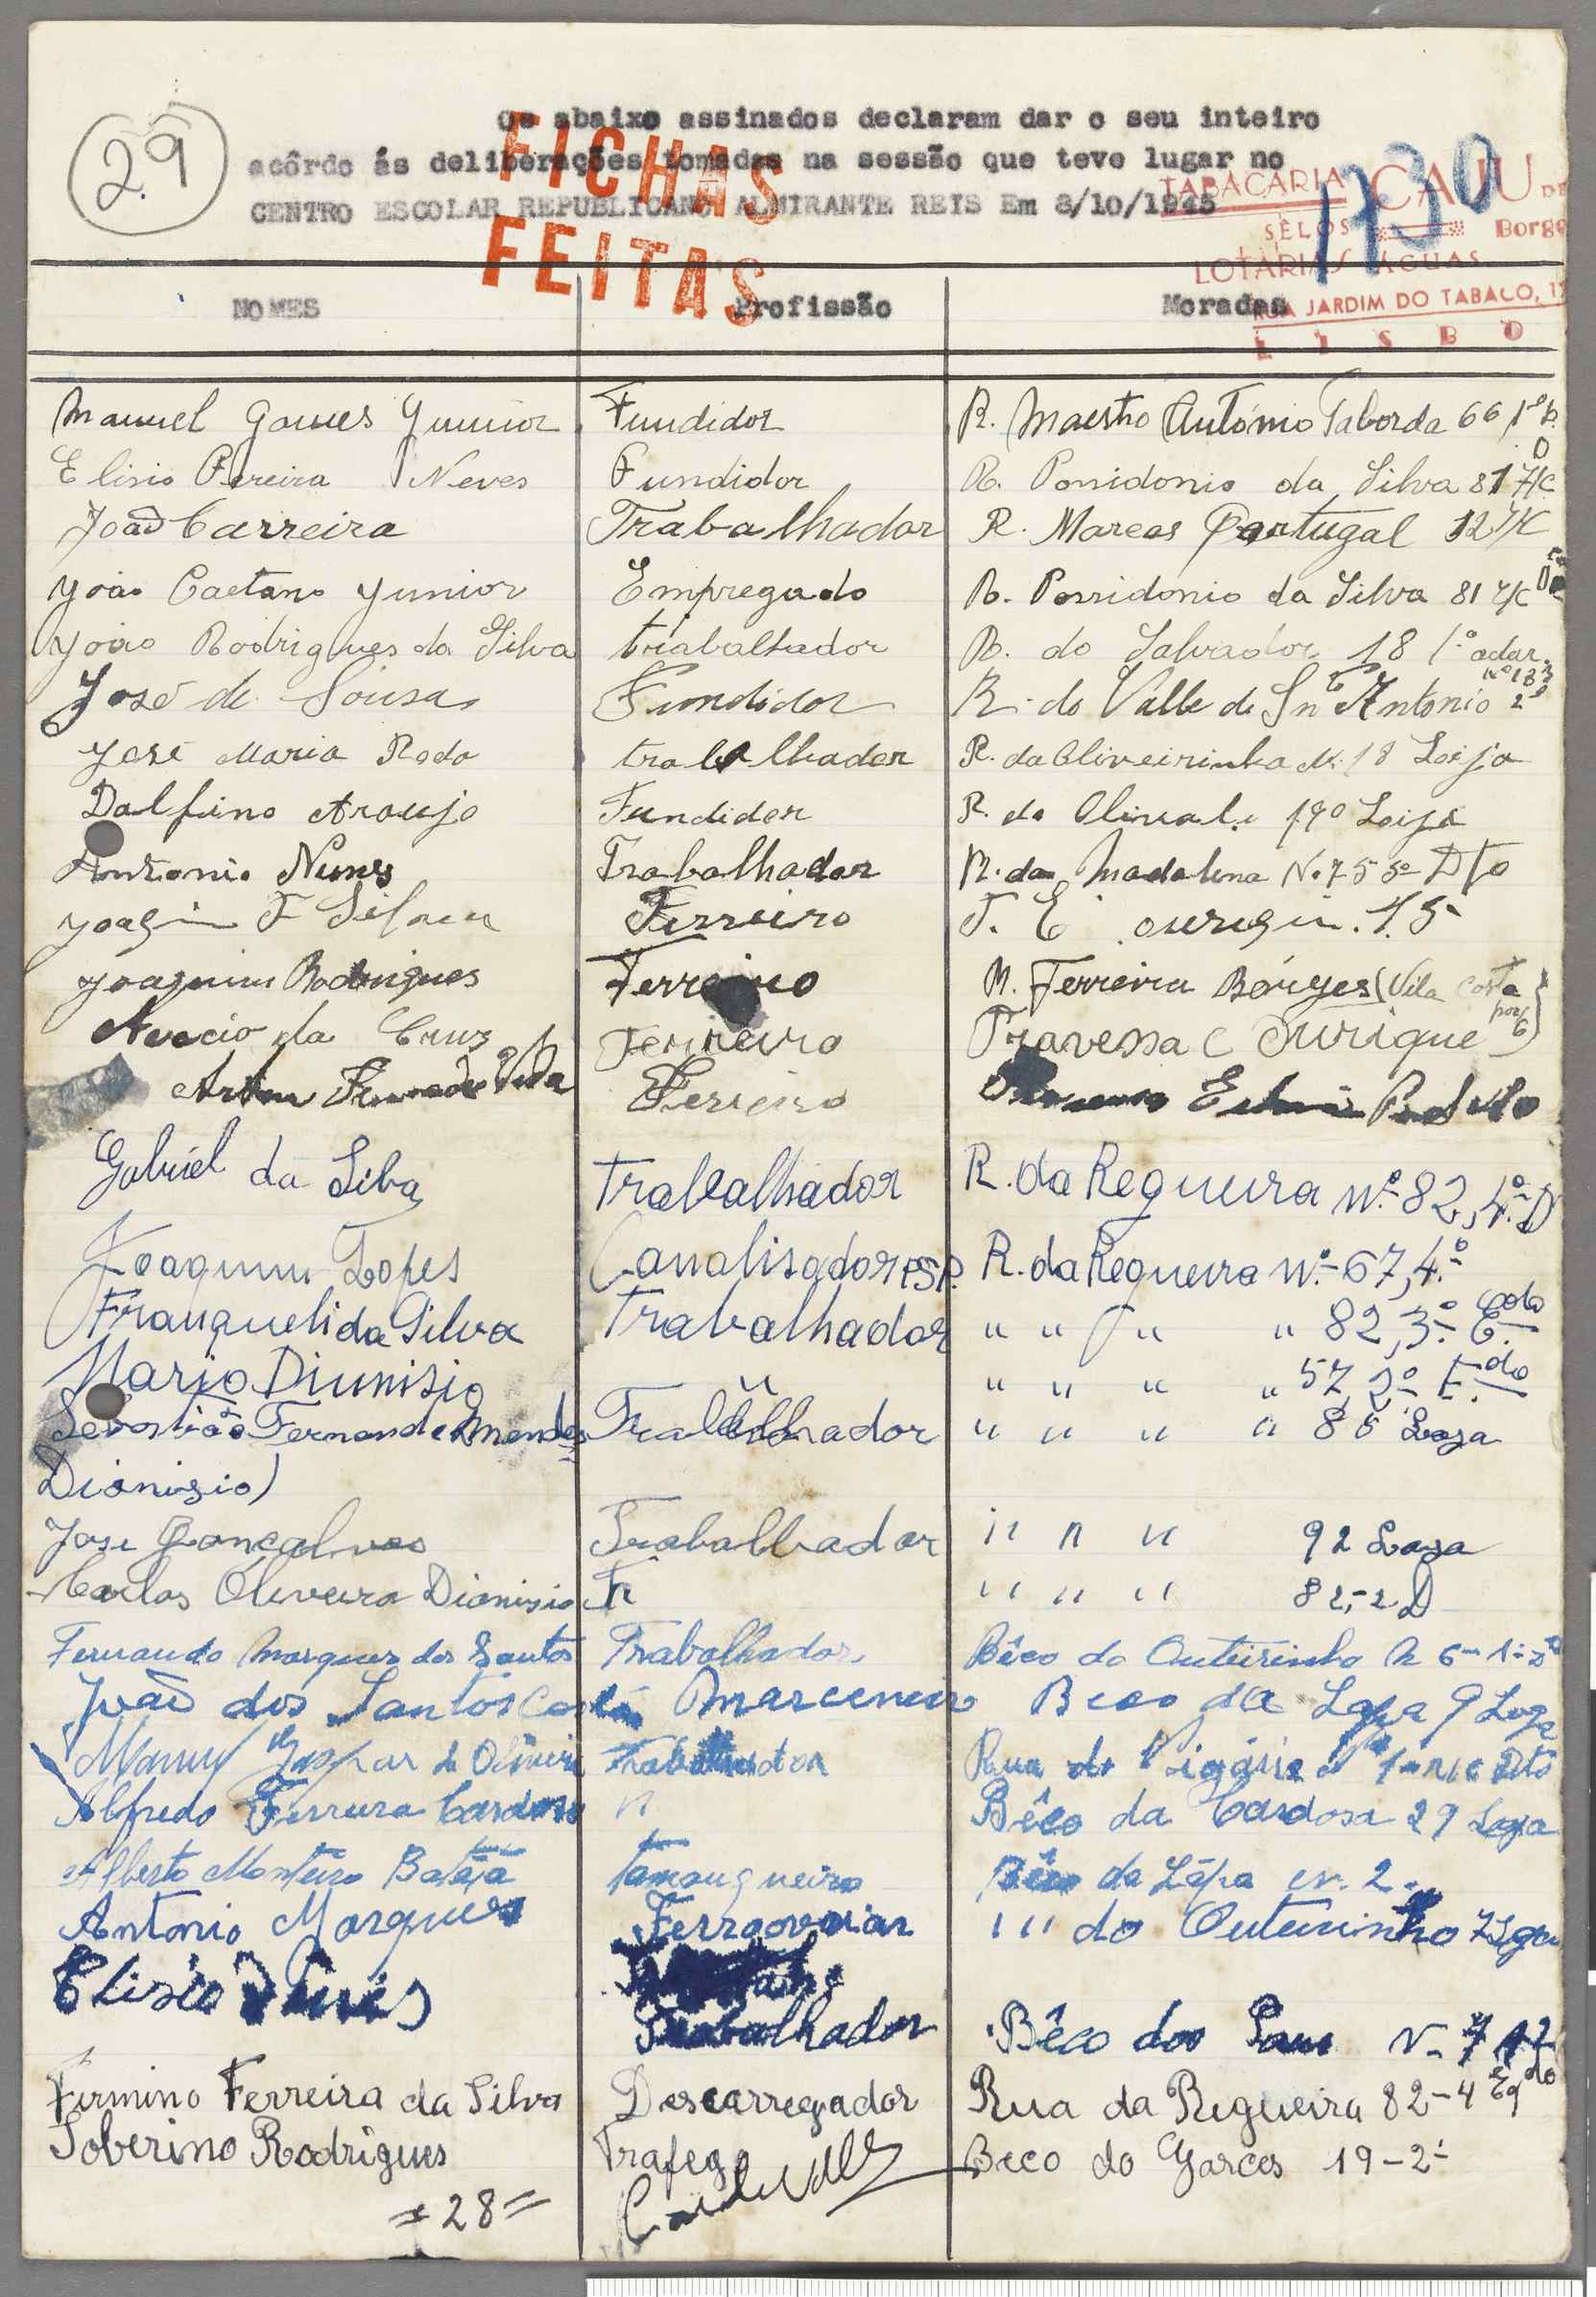 29
Os abaixo assinados declaram dar o seu inteiro
acôrdo ás deliberações tomadas na sessão que teve lugar no
CENTRO ESCOLAR REPUBLICANO ALMIRANTE REIS Em 8/10/1945
FICHAS
FEITAS
1730
TABACARIA CAJU DE
SÊLOS Borge
LOTARIAS AGUAS
RUA JARDIM DO TABACO, 1
LISBO
NOMES Profissão Moradas
Manuel Gomes Junior Fundidor R. Maestro António Taborda 66 1º
Elisio Pereira Neves Fundidor R. Possidonio da Silva 81 r/c
João Carreira Trabalhador R. Marcos Portugal 12 r/c
João Caetano Junior Empregado R. Possidonio da Silva 81 r/c
João Rodrigues da Silva trabalhador R. do Salvador 18 1º adar.
José de Sousa Fundidor R. do Valle de Stº Antonio nº 183 2º
José Maria Roda trabalhador R. da Oliveirinha Nº 18 Loija
Dalfino Araujo Fundidor R. do Olival 190 Loija
Antonio Nunes Trabalhador R. da Madalena Nº 75 5º Dto
Joaqin F Silva Ferreiro T. E 15
Joaquim Rodrigues Ferreiro R. Ferreira Borges (Vila Costa porta 6)
da Cruz Ferreiro Travessa Ourique
Ferreiro
Gabriel da Silva Trabalhador R. da Regueira Nº 82, 4º D
Joaquim Lopes Canalisador R. da Regueira Nº 67, 4º
Franquelida Silva Trabalhador " " " " 82, 3º E. qdo
Mario Diunisio " " " " " 57, 2º E. do
Sebastião Fernandes Mendes Trabalhador " " " " 86 Loja
Dionisio)
Jose Goncalves Trabalhador " " " 92 Loja
Carlos Oliveira Dionisio Tr " " " 82,-2 D
Fernando Marques dos Santos Trabalhador Bêco do Outeirinho
João dos Santos Costa Marceneiro Beco da Lapa 9 Loga
Manuel Gaspar de Oliveira Trabalhador Rua do Vigário Nº 1 - r/c Dto
Alfredo Ferreira Cardoso " Bêco da Cardosa 29 Loja
Alberto Monteiro Batata tamanqueiro Bêco da Lápa nº 2
Antonio Marques Ferroviar " " do Outeirinho 7
Elisio Diniz
Trabalhador Bêco dos
Firmino Ferreira da Silva Descarregador Rua da Regueira 82-4 Eqdo
Soberino Rodrigues Trafego Beco do Garces 19-2º
=28=